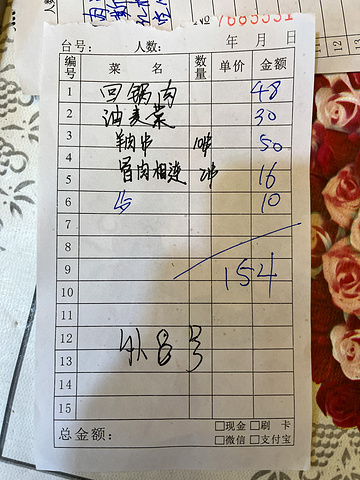 № 7885551
台号： 人数： 年 月 日
编号 菜 名 数量 单价 金额
1 回锅肉 48
2 油麦菜 30
3 羊肉串 10串 50
4 骨肉相连 2串 16
5
6 10
7
8
9 154
10
11
12 外8号
13
14
15
总金额： □现金 □刷 卡
□微信 □支付宝